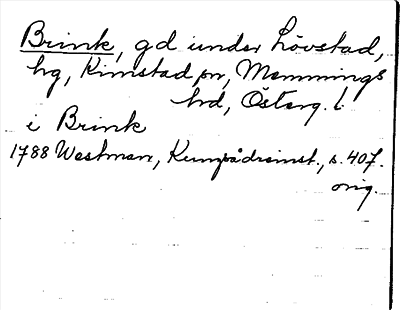 Brink, gd under Lövstad,
hg, Kimstad sn, Memmings
hd, Österg. l.
i Brink
1788 Westman, Kungsådreinst., s. 407.
orig.